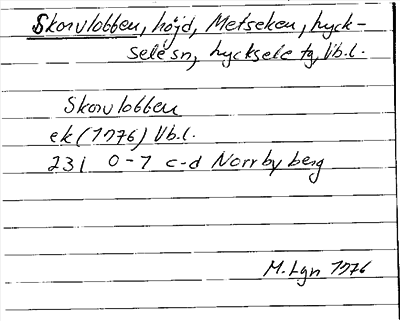 Skorvlobben, höjd, Metseken, Lyck-
sele sn, Lycksele tg, Vb.l.
Skorvlobben
ek (1976) Vb.l.
23 I 0-1 c-d Norrbyberg
M. Lgn 1976